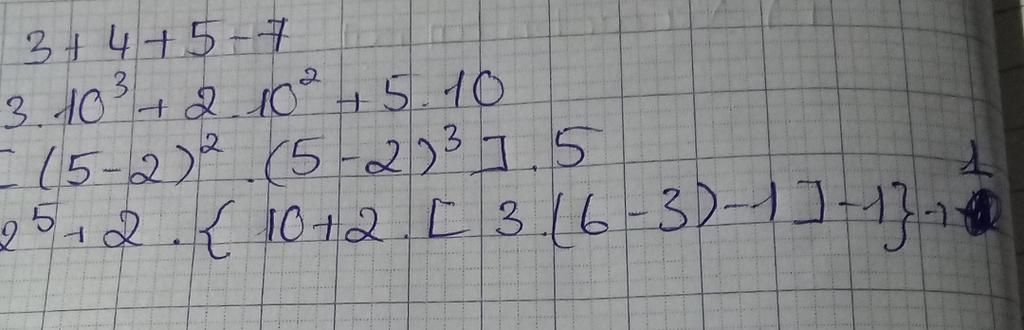 3 + 4 + 5 - 7
3 . 10³ + 2 . 10² + 5 . 10
[ (5 - 2)² . (5 - 2)³ ] . 5
2⁵ + 2 . { 10 + 2 . [ 3 . (6 - 3) - 1 ] - 1 } + 1